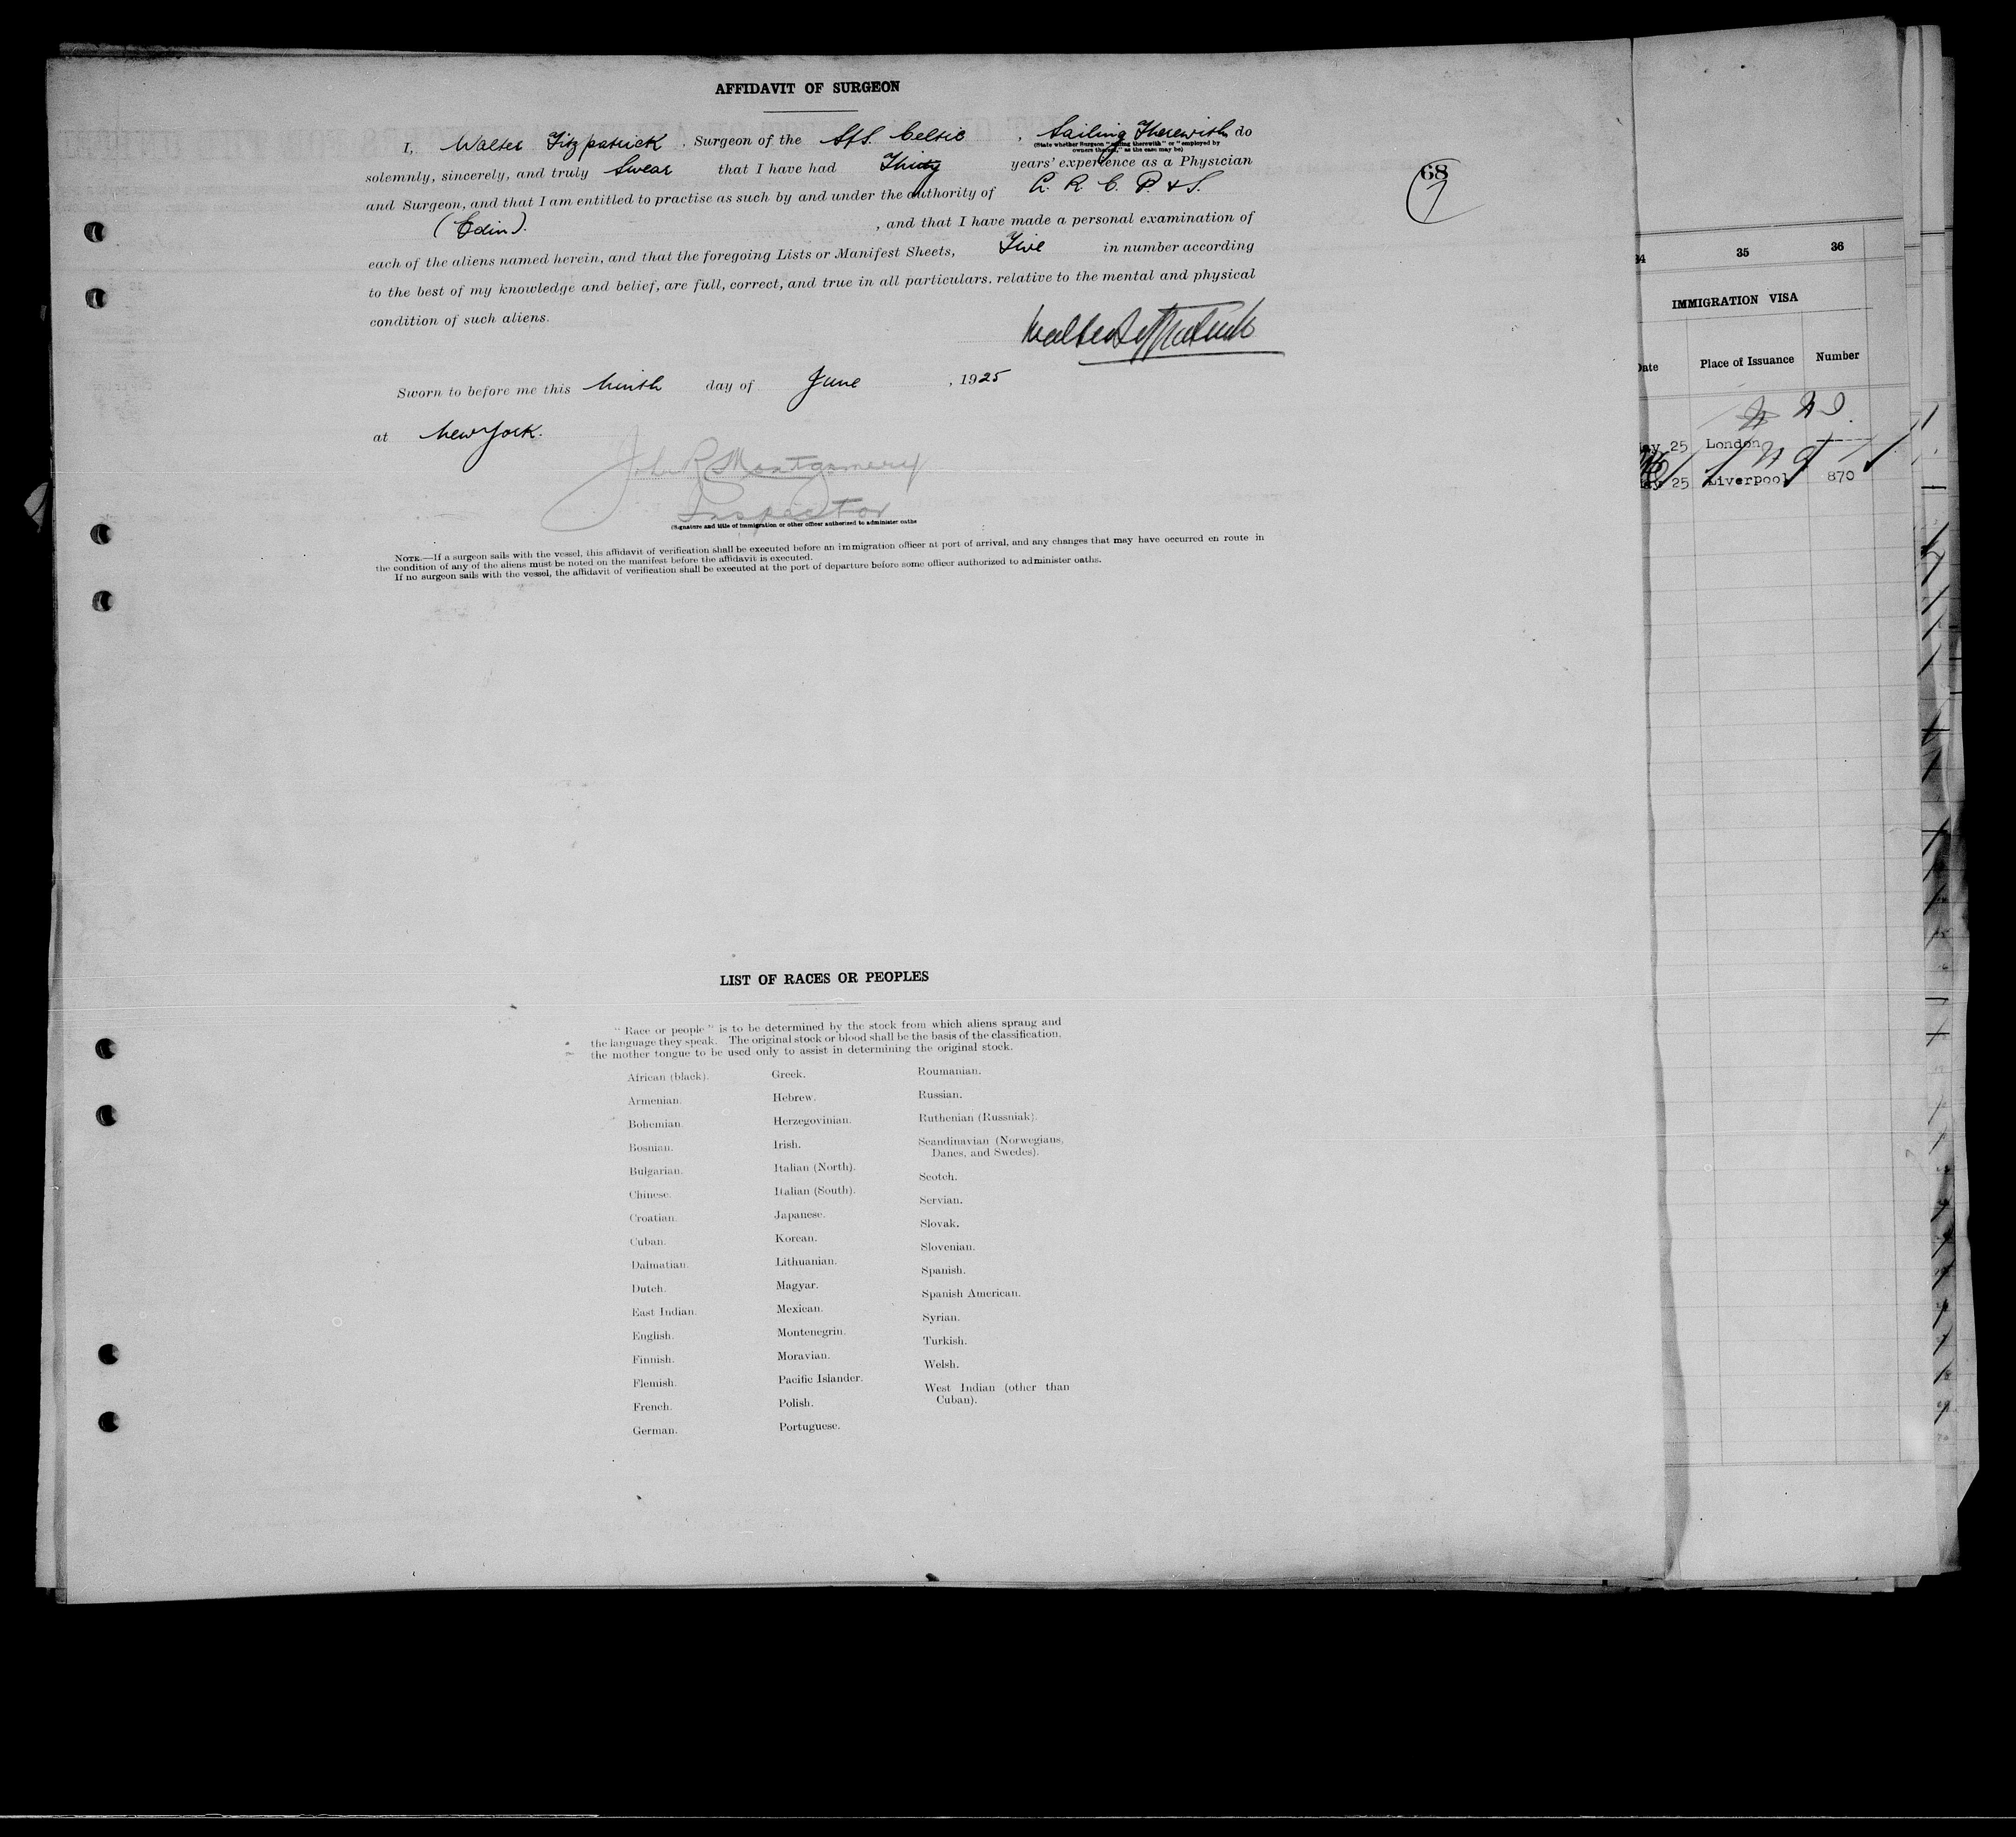 AFFIDAVIT OF SURGEON
I, Walter Fitzpatrick, Surgeon of the S/S. Celtic, Sailing Therewith do
(State whether Surgeon "sailing therewith" or "employed by
owners thereof," as the case may be)
solemnly, sincerely, and truly Swear that I have had Thirty years' experience as a Physician
68
and Surgeon, and that I am entitled to practise as such by and under the authority of L. R. C. P. & S.
(Edin). , and that I have made a personal examination of
each of the aliens named herein, and that the foregoing Lists or Manifest Sheets, Five in number according
to the best of my knowledge and belief, are full, correct, and true in all particulars. relative to the mental and physical
condition of such aliens.
Walter Fitzpatrick
Sworn to before me this Ninth day of June, 1925
at New York.
Montgomery
Inspector
(Signature and title of immigration or other officer authorized to administer oaths
NOTE.—If a surgeon sails with the vessel, this affidavit of verification shall be executed before an immigration officer at port of arrival, and any changes that may have occurred en route in
the condition of any of the aliens must be noted on the manifest before the affidavit is executed.
If no surgeon sails with the vessel, the affidavit of verification shall be executed at the port of departure before some officer authorized to administer oaths.
LIST OF RACES OR PEOPLES
"Race or people" is to be determined by the stock from which aliens sprang and
the language they speak. The original stock or blood shall be the basis of the classification,
the mother tongue to be used only to assist in determining the original stock.
African (black).
Armenian.
Bohemian.
Bosnian.
Bulgarian.
Chinese.
Croatian.
Cuban.
Dalmatian.
Dutch.
East Indian.
English.
Finnish.
Flemish.
French.
German.
Greek.
Hebrew.
Herzegovinian.
Irish.
Italian (North).
Italian (South).
Japanese.
Korean.
Lithuanian.
Magyar.
Mexican.
Montenegrin.
Moravian.
Pacific Islander.
Polish.
Portuguese.
Roumanian.
Russian.
Ruthenian (Russniak).
Scandinavian (Norwegians,
Danes, and Swedes).
Scotch.
Servian.
Slovak.
Slovenian.
Spanish.
Spanish American.
Syrian.
Turkish.
Welsh.
West Indian (other than
Cuban).
34 35 36
IMMIGRATION VISA
Date Place of Issuance Number
25 London
25 Liverpool 870